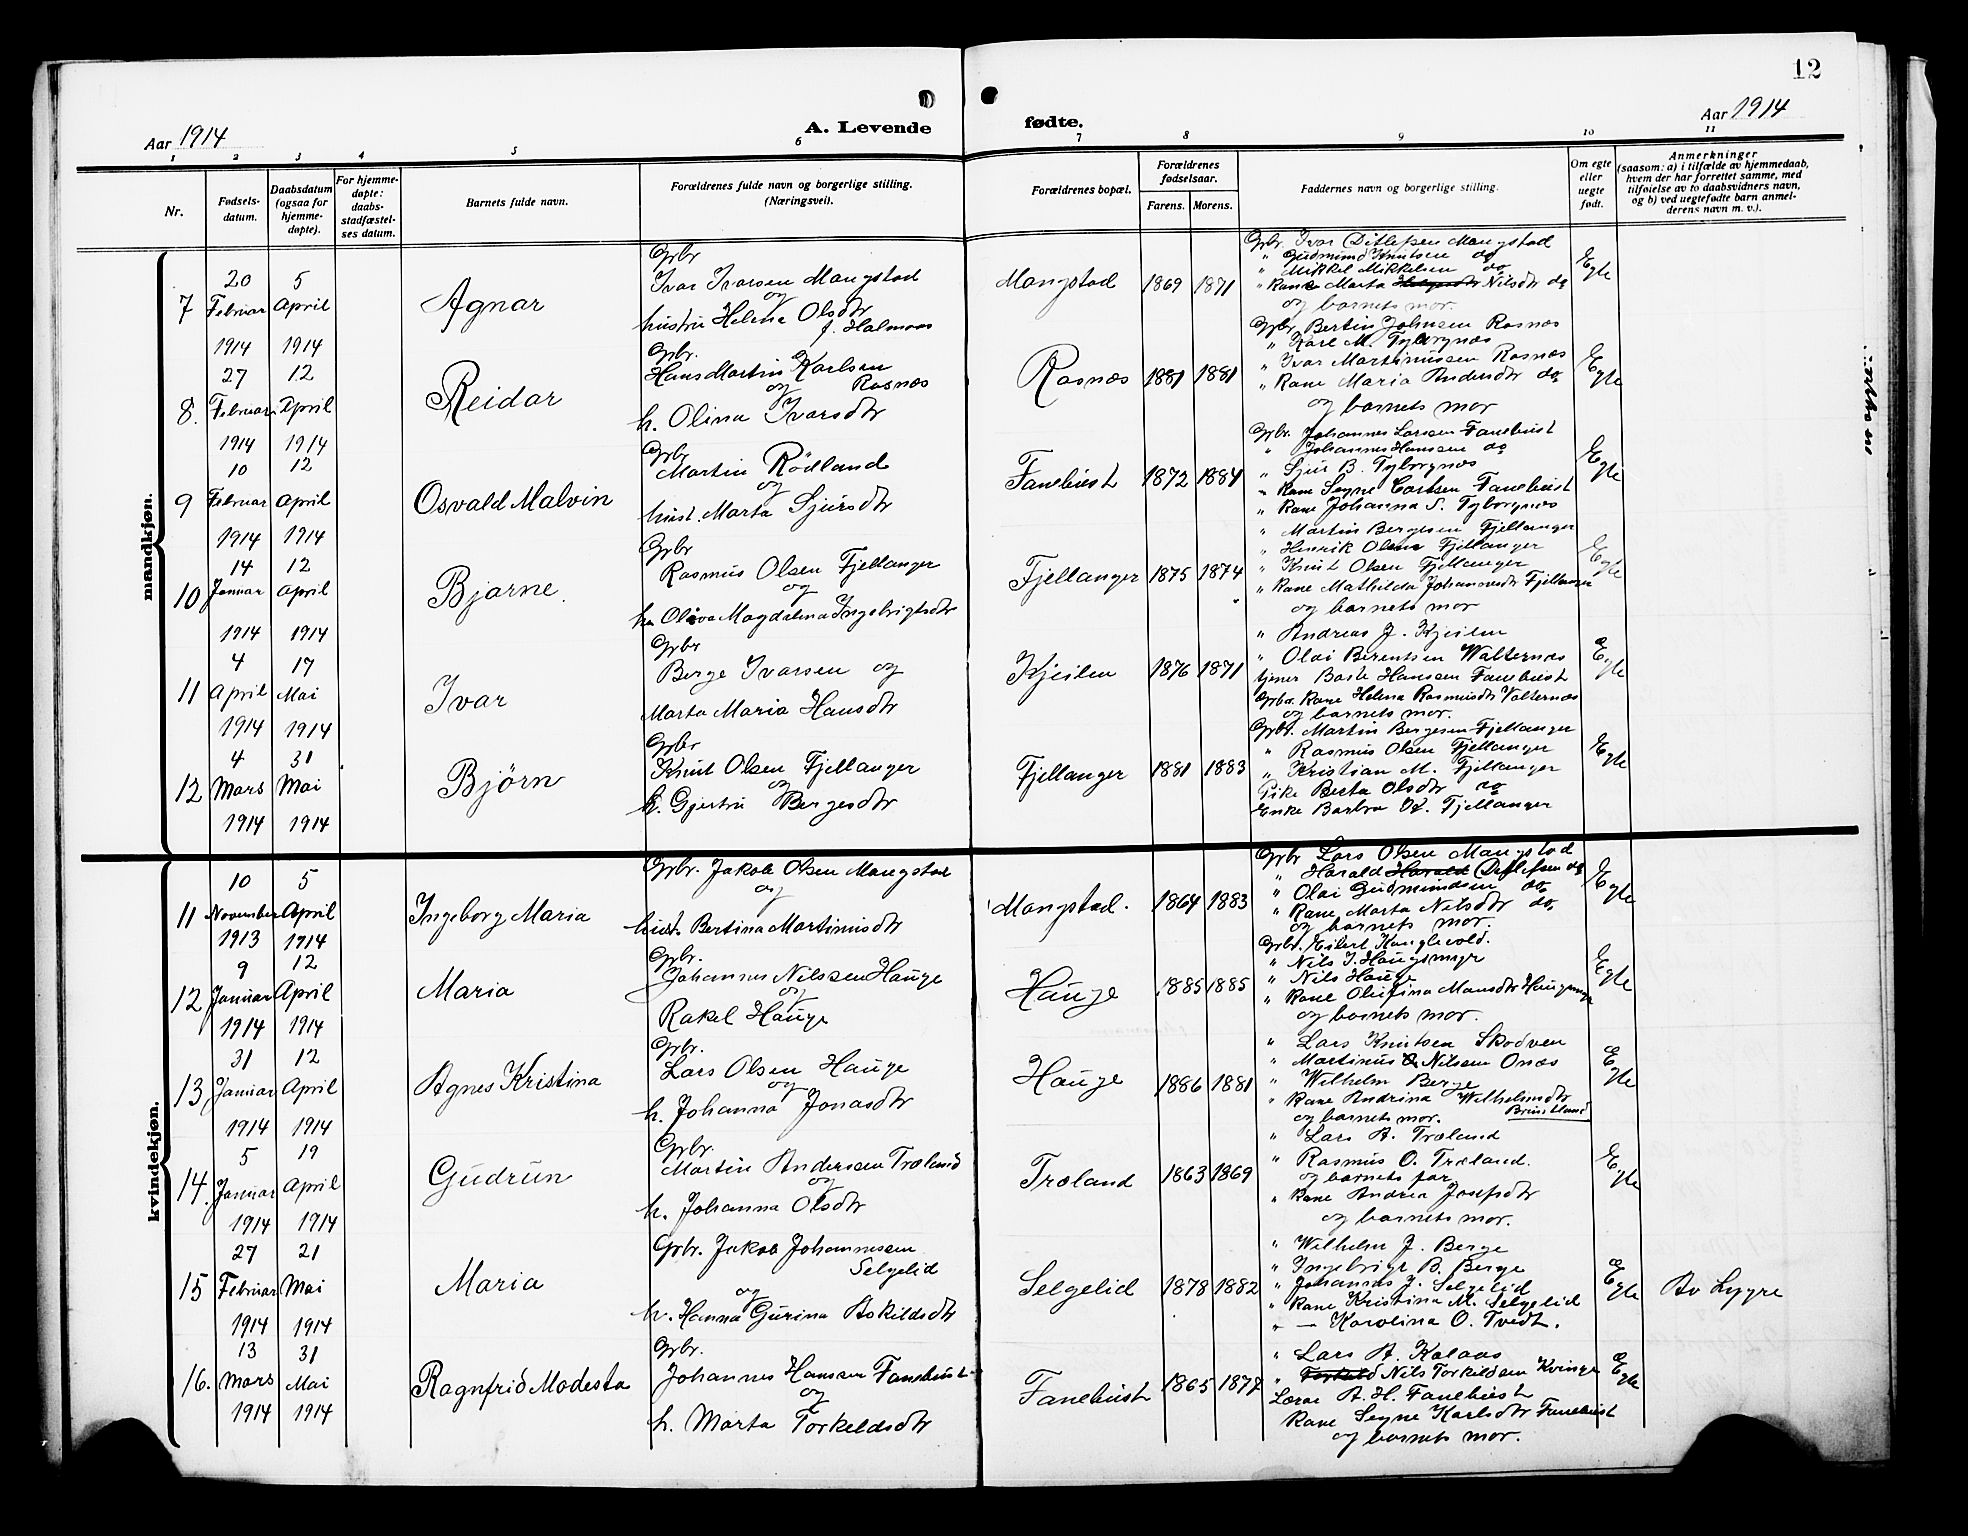 12
Aar 1914
A. Levende fødte.
Aar 1914
1 2 3 4 5 6 7 8 9 10 11
Nr.
Fødsels-
datum.
Daabsdatum
(ogsaa for
hjemme-
døpte).
For hjemme-
døpte:
daabs-
stadfæstel-
ses datum.
Barnets fulde navn.
Forældrenes fulde navn og borgerlige stilling.
(Næringsvei).
Forældrenes bopæl.
Forældrenes
fødselsaar.
Farens. Morens.
Faddernes navn og borgerlige stilling.
Om egte
eller
uegte
født.
Anmerkninger
(saasom: a) i tilfælde av hjemmedaab,
hvem der har forrettet samme, med
tilføielse av to daabsvidners navn,
og b) ved uegtefødte barn anmel-
derens navn m. v.).
mandkjøn.
7
20
Februar
1914
5
April
1914
Agnar
Grbr
Ivar Ivarsen Mangstad
og
hustru Helena Olsdtr
f. Halmaas
Mangstad
1869 1871
Grbr. Ivar Ditlefsen Mangstad
" Gudmund Knutsen do
" Mikkel Mikkelsen do
" Kone Marta Nilsdtr do
og barnets mor.
Egte
8.
27
Februar
1914
12
April
1914
Reidar
Grbr.
Hans Martin Karlsen
og Rasnæs
h. Olina Ivarsdtr
Rasnæs
1881 1881
Grbr. Bertin Johnsen Rasnæs
" Karl M. Tyborgnæs
" Ivar Martinussen Rasnæs
" Kone Maria Andersdtr do
og barnets mor
Egte
9
10
Februar
1914
12
April
1914
Osvald Malvin
Grbr
Martin Rödland
og
hust. Marta Sjursdtr
Fanebust
1872 1884
Grbr. Johannes Larsen Fanebust
" Johannes Hanssen do
" Sjur B. Tyborgnæs
" Kone Sygne Carlsen Fanebust
" Kone Johanna S. Tyborgnæs
Egte
10
14
Januar
1914
12
April
1914
Bjarne
Grbr
Rasmus Olsen Fjellanger
og
h. Oliva Magdalena Ingebrigtsdtr
Fjellanger
1875 1874
" Martin Bergesen Fjellanger
" Henrik Olsen Fjellanger
" Knut Olsen Fjellanger
" Kone Mathilda Johannesdtr Fjellanger
og barnets mor
Egte
11
4
April
1914
17
Mai
1914
Ivar
Grbr
Berge Ivarsen og
Marta Maria Hansdtr
Kjeilen
1876 1871
" Andreas J. Kjeilen
" Olai Berentsen Walternæs
Hansen Fanebust
Grbr. Kone Helena Rasmusdtr Valternæs
og barnets mor.
Egte
12
4
Mars
1914
31
Mai
1914
Björn
Grbr
Knut Olsen Fjellanger
og
h. Gjertru Bergesdtr
Fjellanger
1881 1883
Grbr. Martin Bergesen Fjellanger
" Rasmus Olsen Fjellanger
" Kristian M. Fjellanger
Pike Berta Olsdtr do
Enke Barbro Fjellanger
Egte
kvindekjøn.
11
10
November
1913
5
April
1914
Ingeborg Maria
Grbr. Jakob Olsen Mangstad
og
hust. Bertina Martinusdtr
Mangstad.
1864 1883
Grbr Lars Olsen Mangstad
" Harald Harald Ditlefsen do
" Olai Gudmundsen do
" Kone Marta Nilsdtr do.
og barnets mor.
Egte
12
9
Januar
1914
12
April
1914
Maria
Grbr.
Johannes Nilssen Hauge
og
Rakel Hauge
Hauge
1885 1885
Grbr. Eilert Kanglevold.
" Nils J. Haugsmyr
" Nils Hauge
" Kone Olufina Monsdtr Haugsmyr
og barnets mor.
Egte
13
31
Januar
1914
12
April
1914
Agnes Kristina
Grbr.
Lars Olsen Hauge
og
h. Johanna Jonasdtr
Hauge
1886 1881
" Lars Knutsen Skodven
" Martinus Nilsen Onæs
" Wilhelm Berge
" Kone Andrina Wilhelmsdtr
og barnets mor. Bruntland
Egte
14.
5
Januar
1914
19
April
1914
Gudrun
Grbr.
Martin Andersen Træland
og
h. Johanna Olsdtr
Træland
1863 1869
" Lars A. Træland
" Rasmus O. Træland.
og barnets far
" Kone Andrea Josefsdtr
og barnets mor.
Egte
15
27
Februar
1914
21
Mai
1914
Maria
Grbr. Jakob Johannessen
Selgelid
og
h. Hanna Gurina Askildsdtr
Selgelid
1878 1882
" Wilhelm J. Berge
" Ingebrigt B. Berge
" Johannes J. Selgelid
" Kone Kristina M. Selgelid
" — Karolina O. Tvedt.
Egte
Av Lygre
16.
13
Mars
1914
31
Mai
1914
Ragnfrid Modesta
Grbr.
Johannes Hanssen Fanebust
og
h. Marta Torkeldsdtr
Fanebust
1865 1877
" Lars A. Kalaas
" Torkeld Nils Torkeldsen Kvinge
Lærer A. H. Fanebust
Kone Sygne Karlsdtr Fanebust
og barnets mor.
Egte